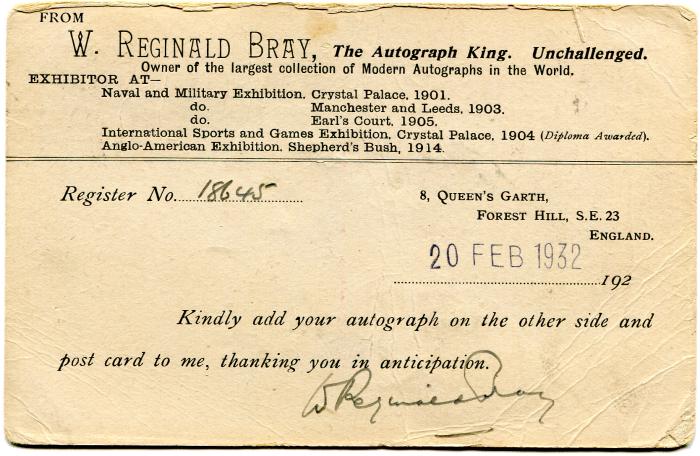 FROM
W. REGINALD BRAY, The Autograph King. Unchallenged.
Owner of the largest collection of Modern Autographs in the World.
EXHIBITOR AT—
Naval and Military Exhibition, Crystal Palace, 1901.
do. Manchester and Leeds, 1903.
do. Earl's Court, 1905.
International Sports and Games Exhibition, Crystal Palace, 1904 (Diploma Awarded).
Anglo-American Exhibition, Shepherd's Bush, 1914.
Register No. 18645
8, QUEEN'S GARTH,
FOREST HILL, S.E. 23
ENGLAND.
20 FEB 1932
192
Kindly add your autograph on the other side and
post card to me, thanking you in anticipation.
W Reginald Bray